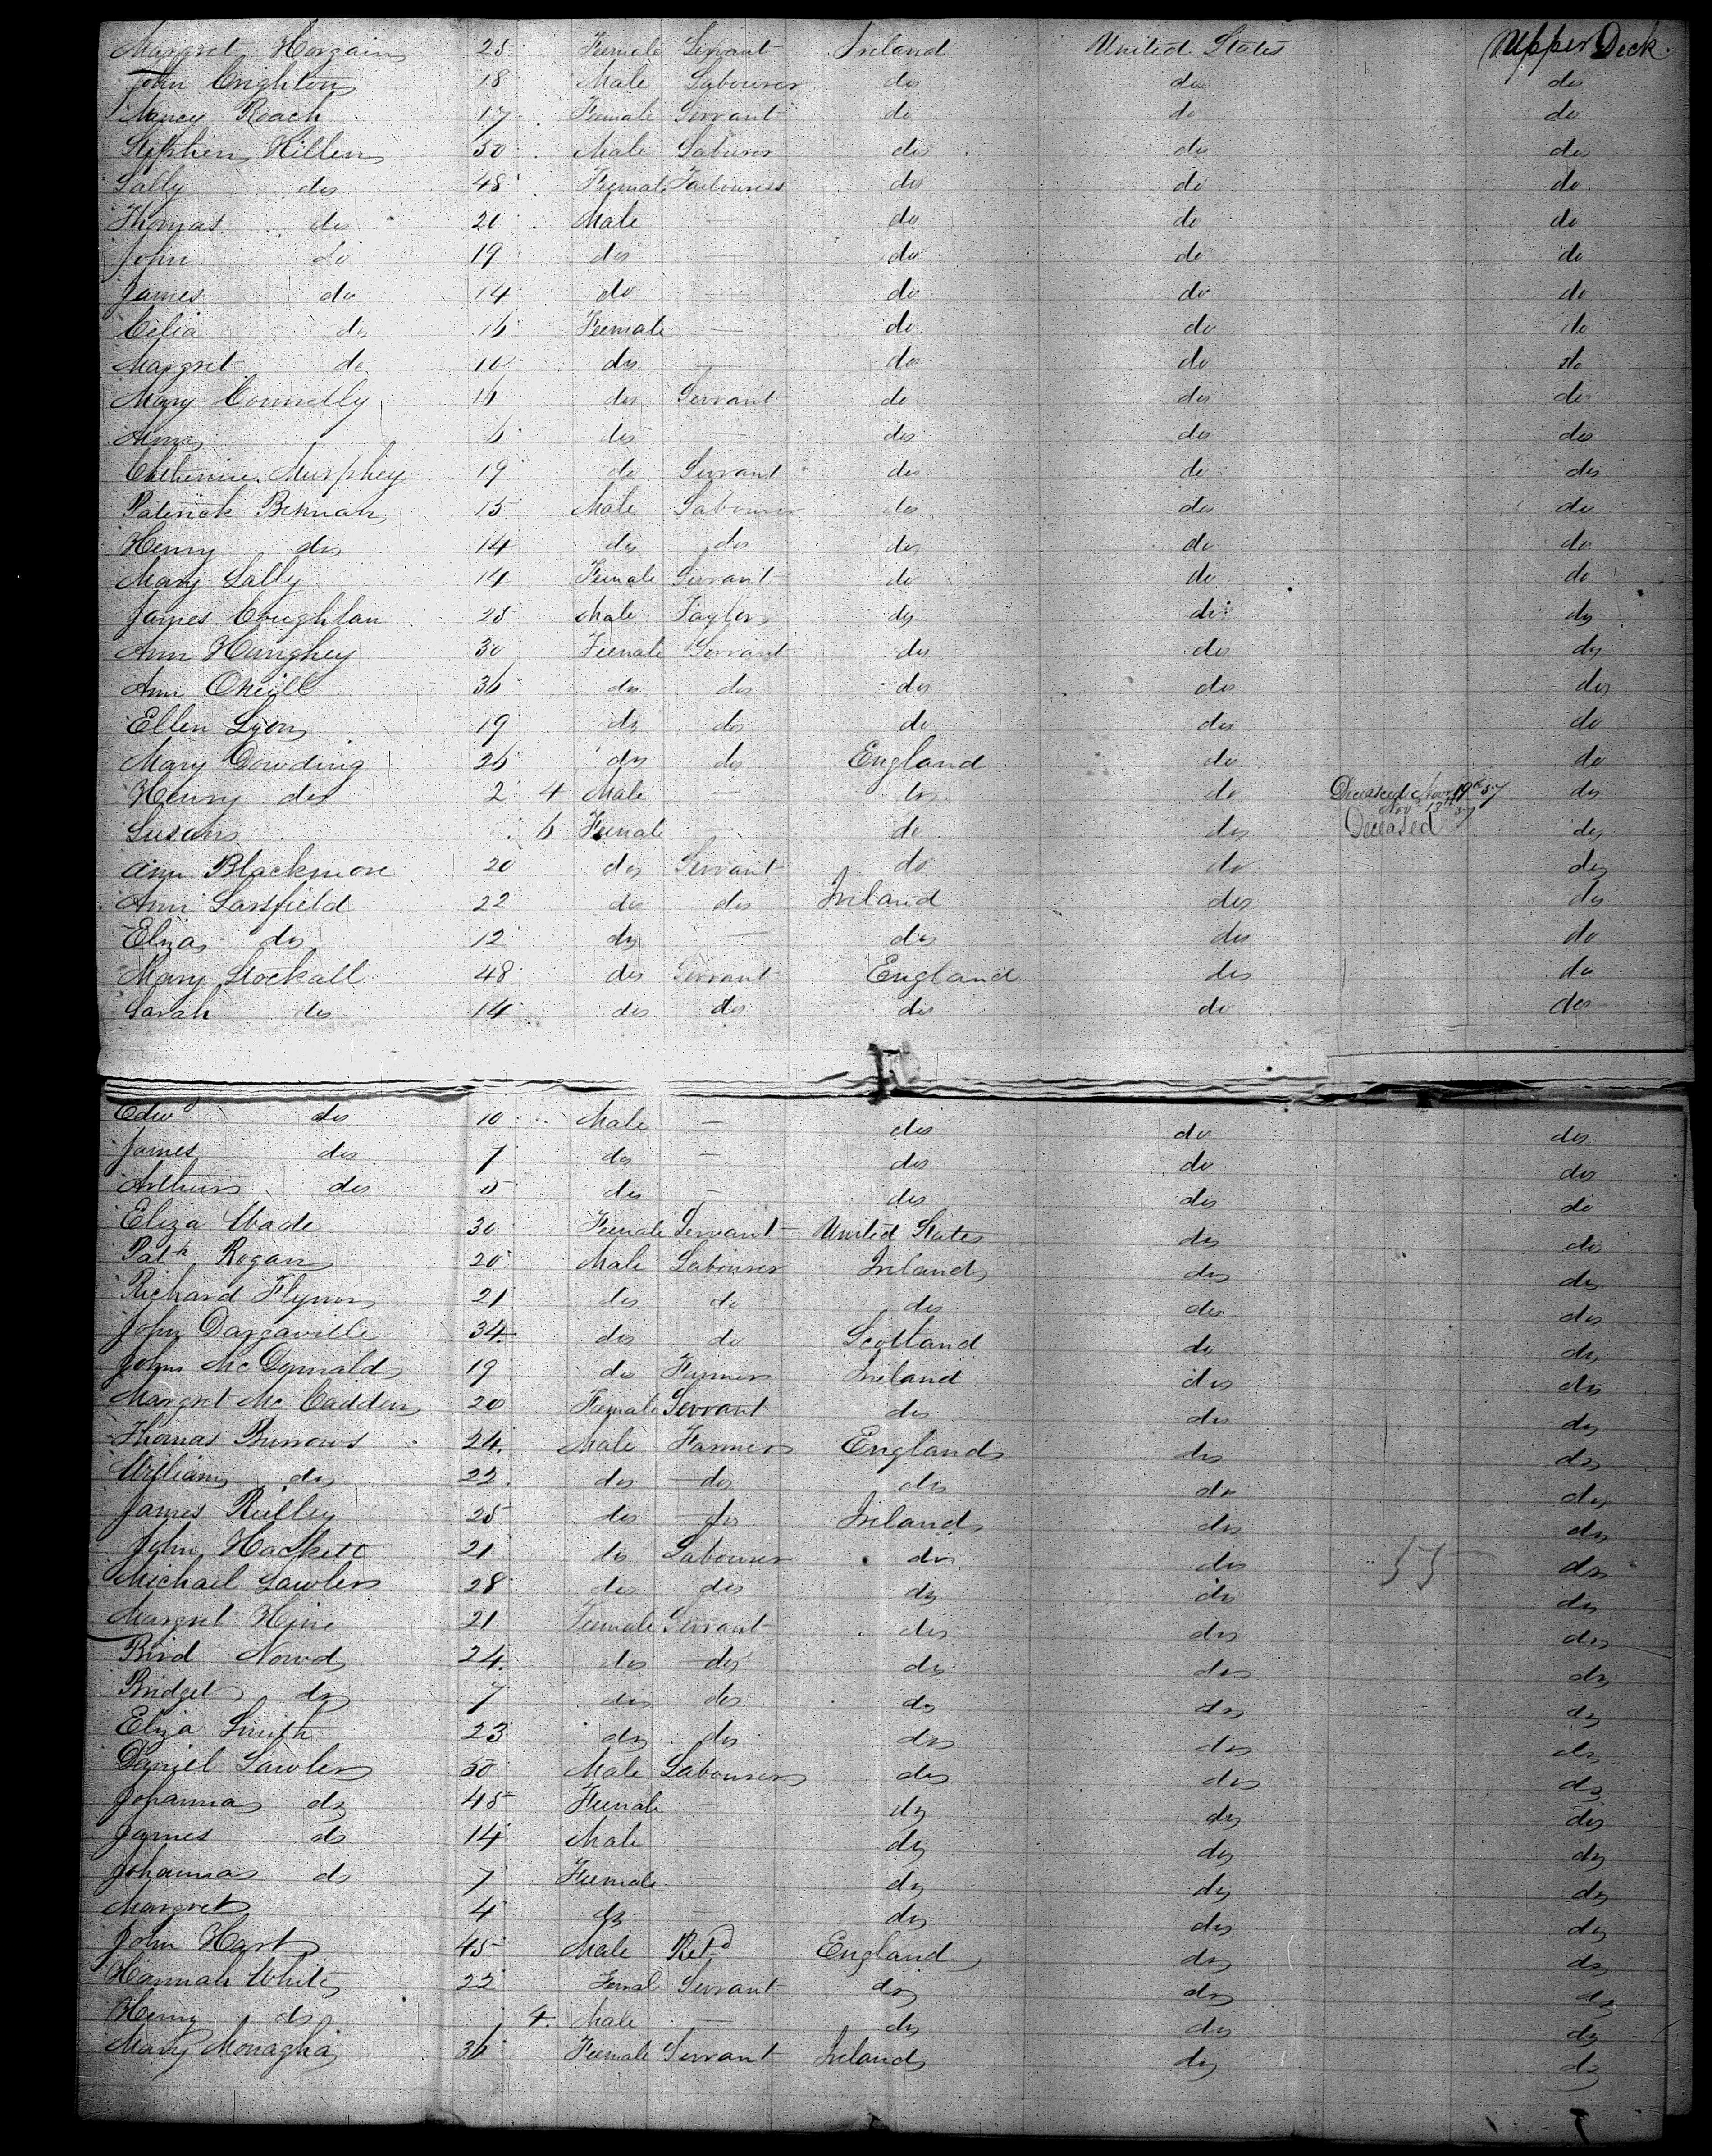 Margret Horgain 25 Female Servant Ireland United States Upper Deck
John Crighton 18 Male Labourer do do do
Nancy Roach 17 Female Servant do do do
Stephen Killen 50 Male Laburer do do do
Sally do 48 Female Tailouress do do do
Thomas do 20 Male — do do do
John do 19 do — do do do
James do 14 do — do do do
Celia do 16 Female — do do do
Margret do 10 do — do do do
Mary Connelly 16 do Servant do do do
Ann 6 do — do do do
Catherine Murphey 19 do Servant do do do
Paterick Brnnan 15 Male Labourer do do do
Henry do 14 do do do do do
Mary Lally 14 Female Servant do do do
James Coughlan 25 Male Taylor do do do
Ann Haughey 30 Female Servant do do do
Ann Oneill 36 do do do do do
Ellen Lyon 19 do do do do do
Mary Dowding 26 do do England do do
Henry do 2 4 Male — do do Deceased Nov 19th 57 do
Susan 6 Female — do do Nov 13th 57 Deceased do
Ann Blackmore 20 do Servant do do do
Ann Sarsfield 22 do do Ireland do do
Eliza do 12 do — do do do
Mary Stockall 48 do Servant England do do
Sarah do 14 do do do do do
Edwd do 10 Male — do do do
James do 7 do — do do do
Arthur do 5 do — do do do
Eliza Wade 30 Female Servant United States do do
Patk Rogan 20 Male Labourer Ireland do do
Richard Flynn 21 do do do do do
John Dargaville 34 do do Scotland do do
John McDonnald 19 do Farmer Ireland do do
Margret McCadden 20 Female Servant do do do
Thomas Burrows 24 Male Farmer England do do
William do 22 do do do do do
James Reilley 25 do do Ireland do do
John Hackett 21 do Labourer do do 55 do
Michael Lawler 28 do do do do do
Margret Hine 21 Female Servant do do do
Brid Nowd 24 do do do do do
Bridget do 7 do do do do do
Eliza Smith 23 do do do do do
Daniel Lawler 50 Male Labourer do do do
Johanna do 45 Female — do do do
James do 14 Male — do do do
Johanna do 7 Female — do do do
Margret 4 do — do do do
John Hart 45 Male Retd England do do
Hannah White 22 Femal Servant do do do
Henry do 4 Male — do do do
Mary Monagha 36 Female Servant Ireland do do